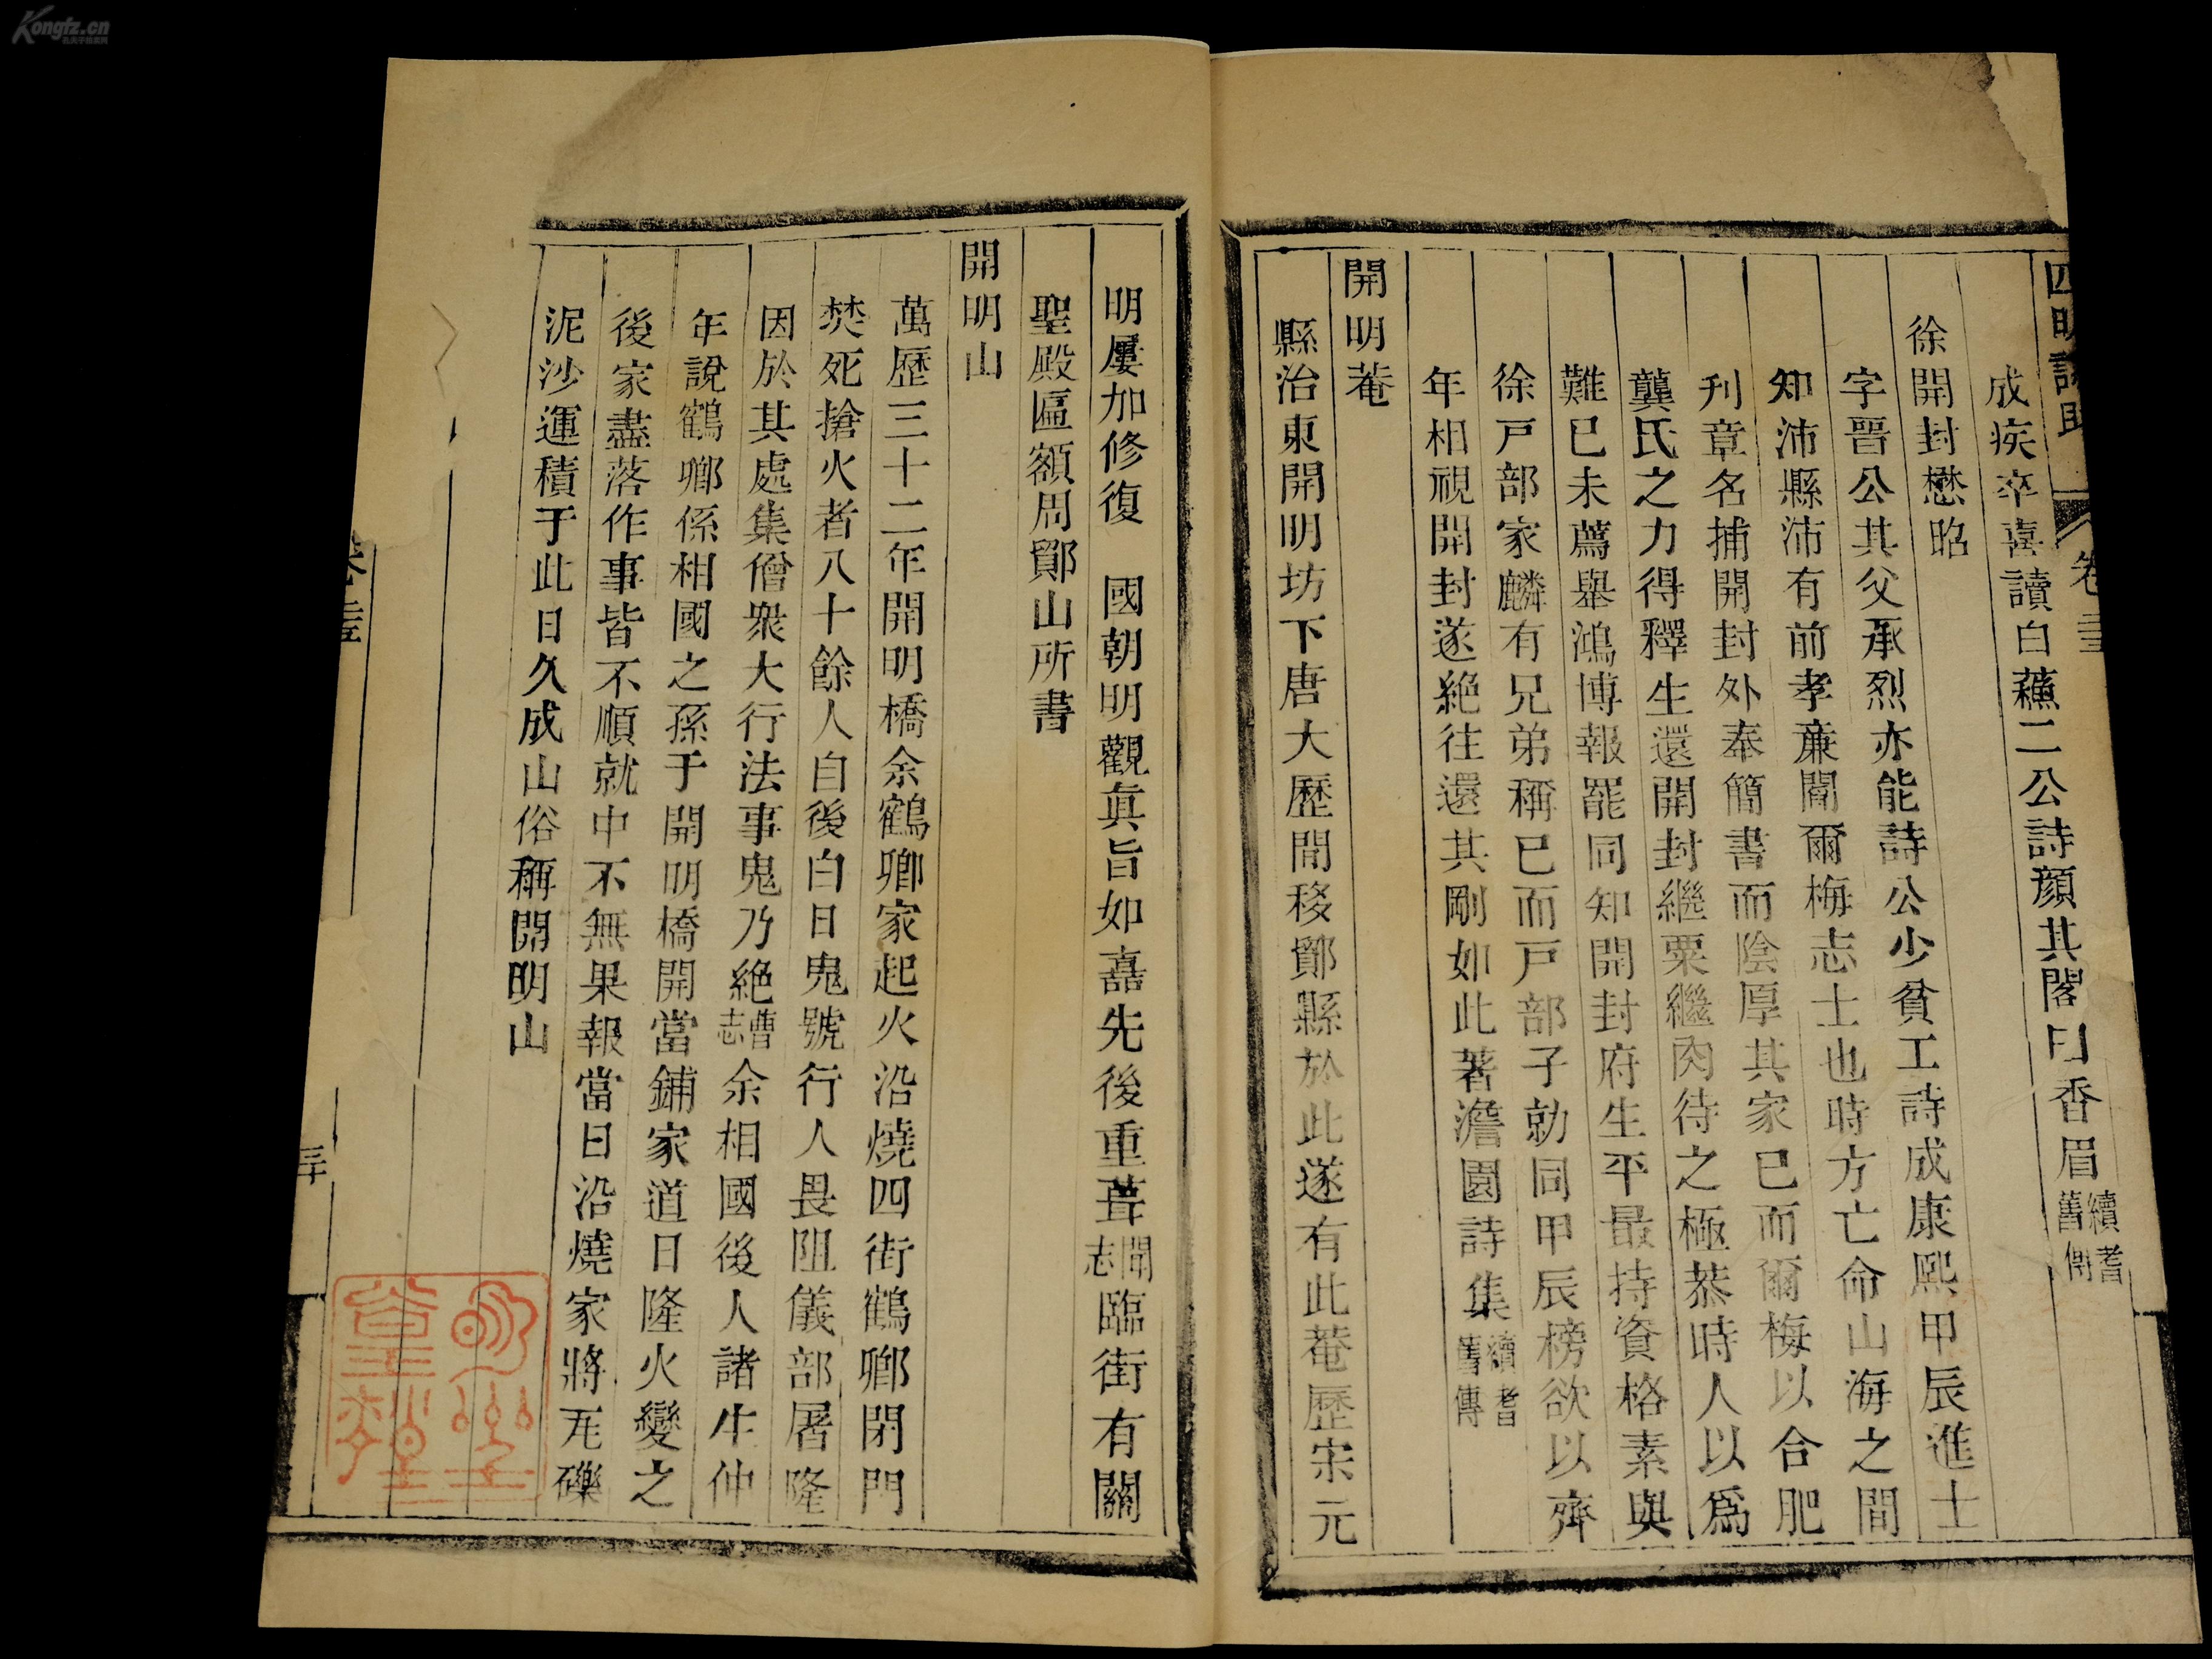 成疾卒喜讀白蘇二公詩顏其閣曰香眉續耆舊傳
徐開封懋昭
字晉公其父承烈亦能詩公少貧工詩成康熙甲辰進士
知沛縣沛有前孝廉閻爾梅志士也時方亡命山海之間
刊章名捕開封外奉簡書而陰厚其家已而爾梅以合肥
龔氏之力得釋生還開封繼粟繼肉待之極恭時人以爲
難已未薦舉鴻博報罷同知開封府生平最持資格素與
徐戸部家麟有兄弟稱已而戸部子勍同甲辰榜欲以齊
年相視開封遂絶往還其剛如此著澹園詩集續耆舊傳
開明菴
縣治東開明坊下唐大歷間移鄮縣於此遂有此菴歷宋元
明屢加修復 國朝明觀眞旨如嘉先後重葺聞志臨街有關
聖殿匾額周鄮山所書
開明山
萬歷三十二年開明橋余鶴卿家起火沿燒四街鶴鄉閉門
焚死搶火者八十餘人自後白日鬼號行人畏阻儀部屠隆
因於其處集僧衆大行法事鬼乃絶曹志余相國後人諸生仲
年說鶴鄉係相國之孫于開明橋開當鋪家道日隆火變之
後家盡落作事皆不順就中不無果報當日沿燒家將瓦礫
泥沙運積于此日久成山俗稱開明山
三十
Kongfz.cn